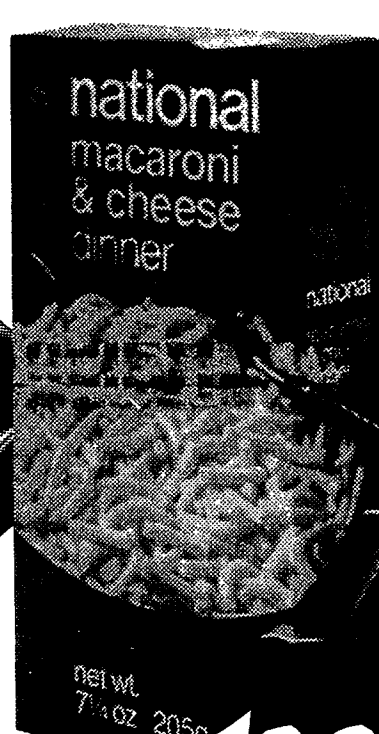 national
macaroni
& cheese
dinner
national
net wt.
7¼ oz 205g